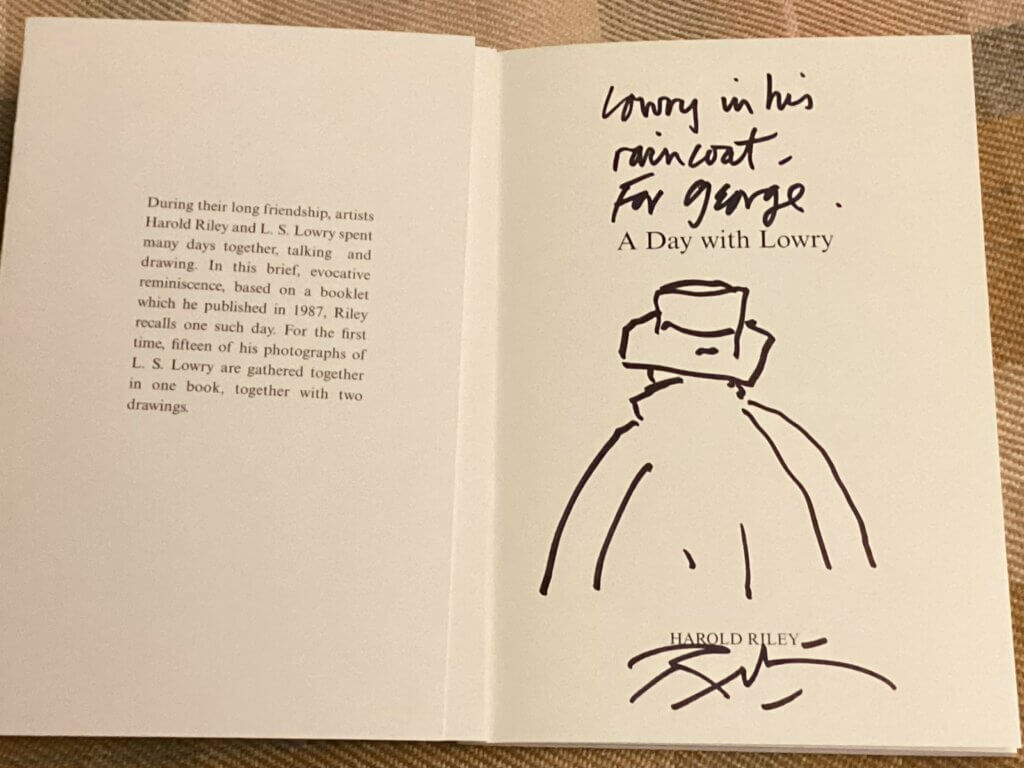 During their long friendship, artists
Harold Riley and L. S. Lowry spent
many days together, talking and
drawing. In this brief, evocative
reminiscence, based on a booklet
which he published in 1987, Riley
recalls one such day. For the first
time, fifteen of his photographs of
L. S. Lowry are gathered together
in one book, together with two
drawings.
Lowry in his
raincoat -
For george .
A Day with Lowry
HAROLD RILEY